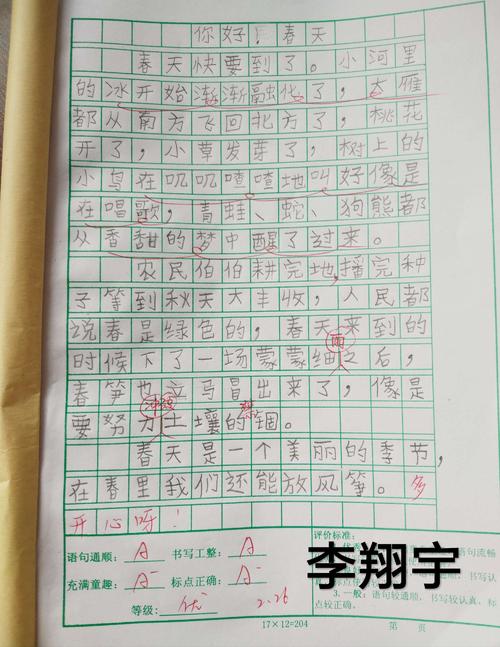 你好！春天
春天快要到了。小河里
的冰开始渐渐融化了，大雁
都从南方飞回北方了，桃花
开了，小草发芽了，树上的
小鸟在叽叽喳喳地叫好像是
在唱歌，青蛙、蛇、狗熊都
从香甜的梦中醒了过来。
农民伯伯耕完地，播完种
子等到秋天大丰收，人民都
说春是绿色的，春天来到的
时候下了一场蒙蒙细之后，
雨
春笋也立马冒出来了，像是
冲破
要努力土壤的锢。
禁
春天是一个美丽的季节，
在春里我们还能放风筝。多
开心呀！
语句通顺： A 书写工整： A
充满童趣： A 标点正确： A
等级： 优 2.26
评价标准：
语句流畅
李翔宇
3.一般：语句较通顺，书写较认真，标
点较正确。
17×12=204 第 页